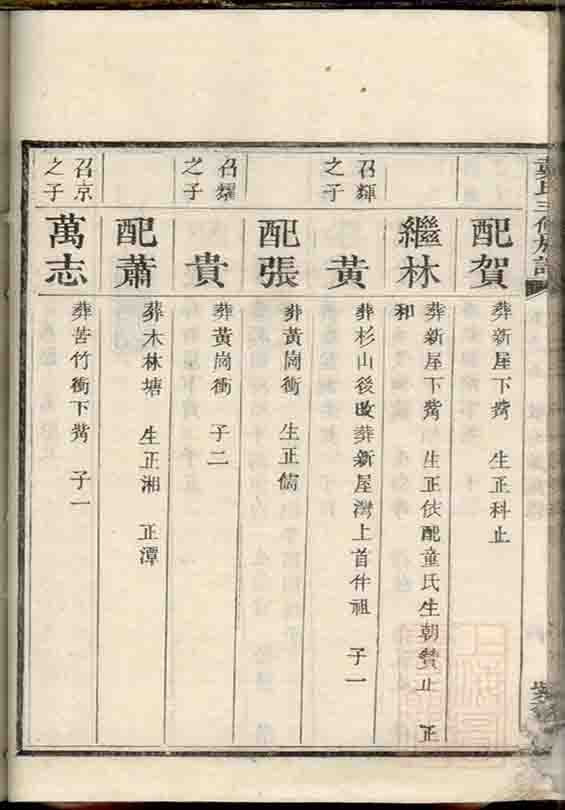 氏三修族譜
配賀 葬新屋下觜 生正科止
繼林 葬新屋下觜 生正伏配童氏生朝贊止 正和
召輝之子 黃 葬杉山後改葬新屋灣上首伴祖 子一
配張 葬黃崗衝 生正儒
召耀之子 貴 葬黃崗衝 子二
配蕭 葬木林塘 生正湘 正潭
召京之子 萬志 葬苦竹衝下觜 子一